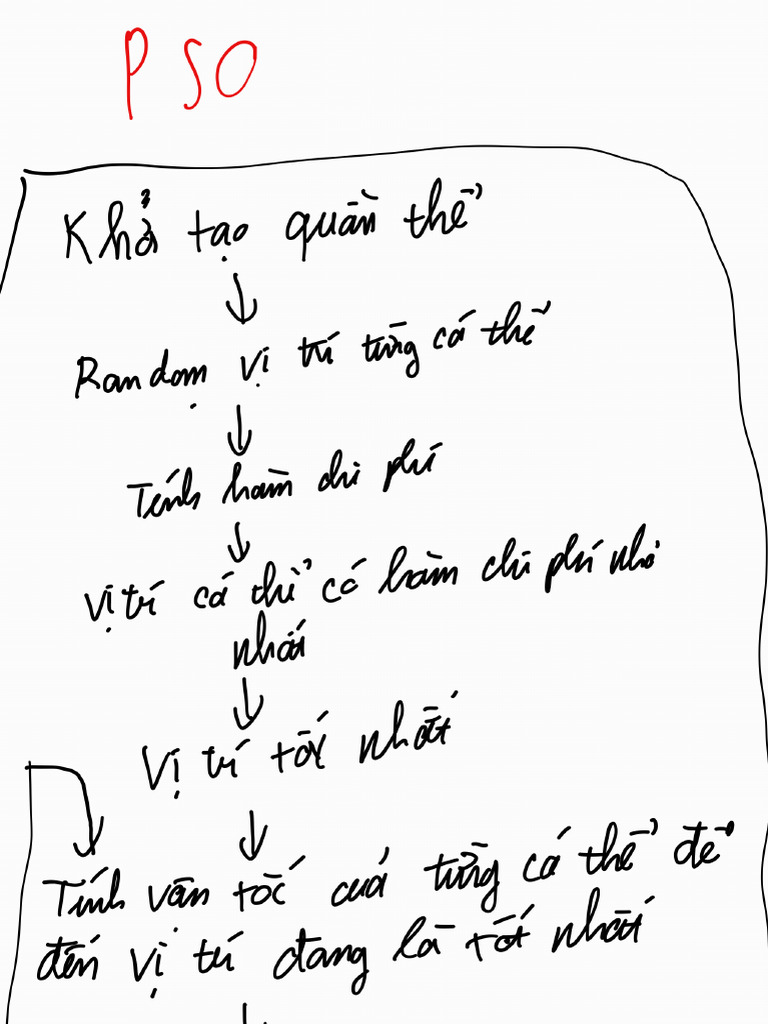 PSO
Khởi tạo quần thể
Random vị trí từng cá thể
Tính hàm chi phí
Vị trí cá thể có hàm chi phí nhỏ
nhất
Vị trí tốt nhất
Tính vận tốc của từng cá thể để
đến vị trí đang là tốt nhất